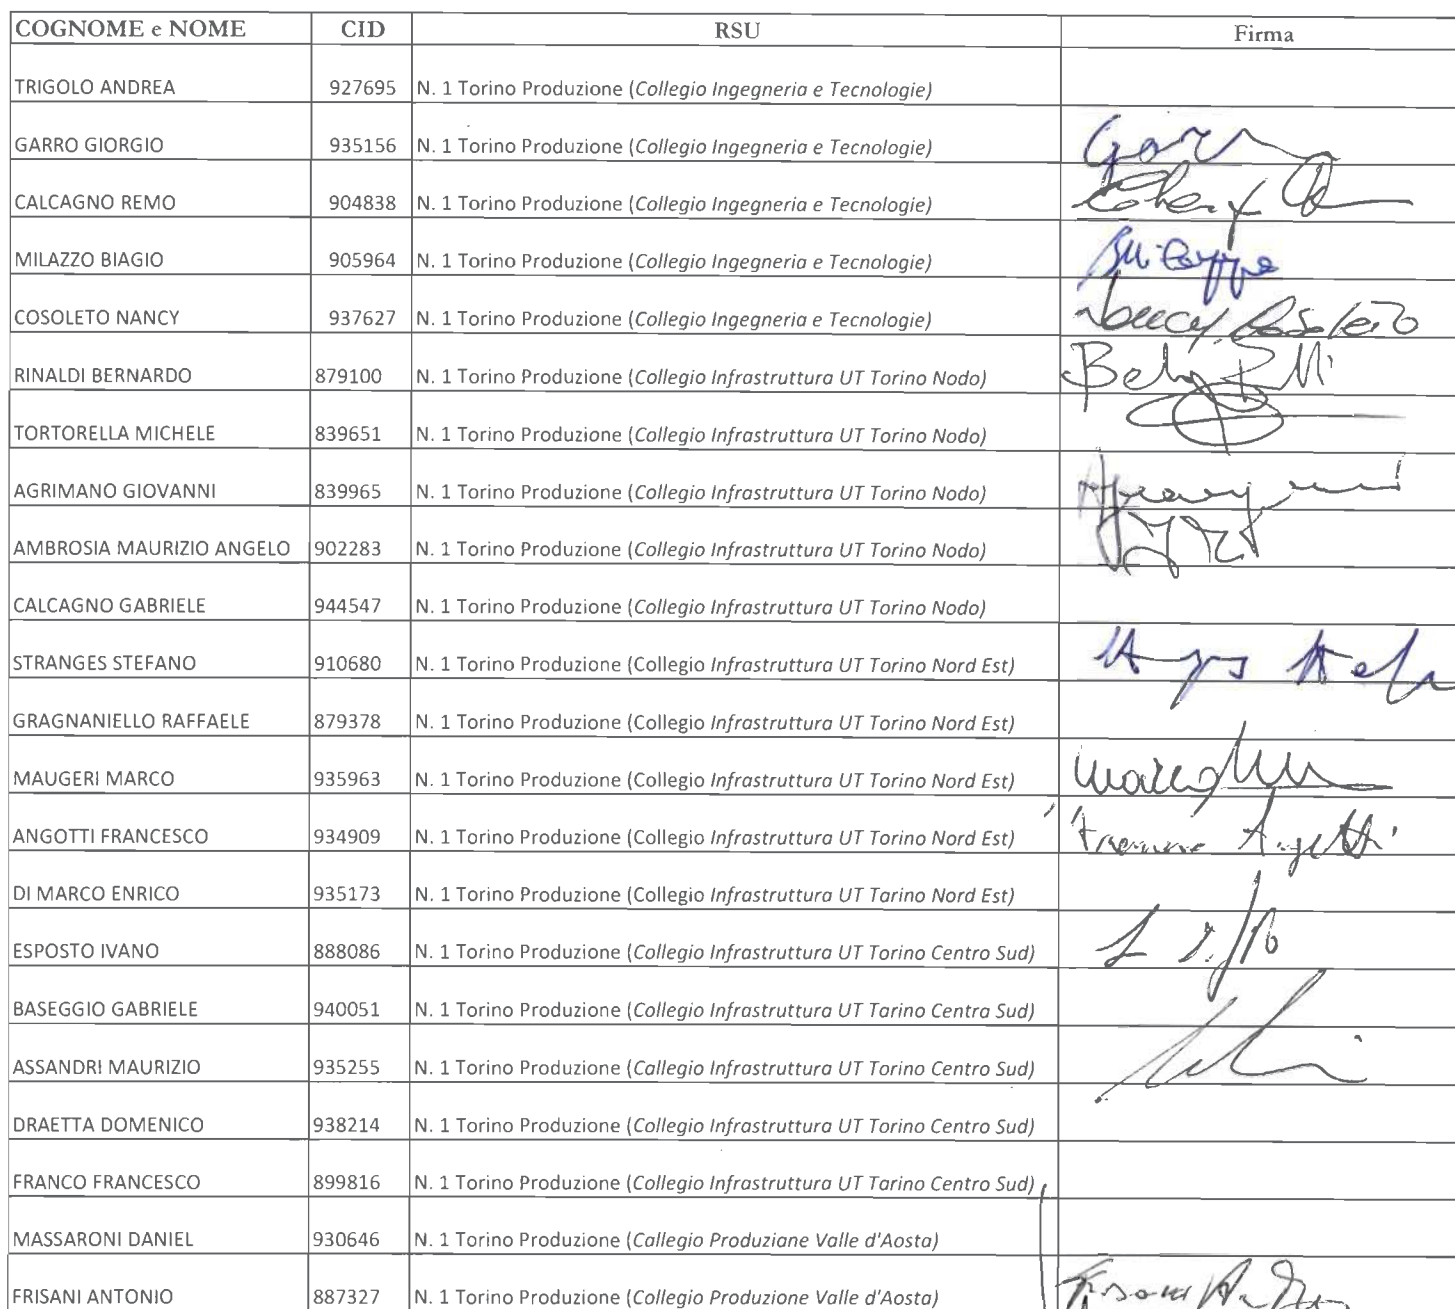 COGNOME e NOME CID RSU Firma
TRIGOLO ANDREA 927695 N. 1 Torino Produzione (Collegio Ingegneria e Tecnologie)
GARRO GIORGIO 935156 N. 1 Torino Produzione (Collegio Ingegneria e Tecnologie)
CALCAGNO REMO 904838 N. 1 Torino Produzione (Collegio Ingegneria e Tecnologie)
MILAZZO BIAGIO 905964 N. 1 Torino Produzione (Collegio Ingegneria e Tecnologie)
COSOLETO NANCY 937627 N. 1 Torino Produzione (Collegio Ingegneria e Tecnologie) Nancy Cosoleto
RINALDI BERNARDO 879100 N. 1 Torino Produzione (Collegio Infrastruttura UT Torino Nodo)
TORTORELLA MICHELE 839651 N. 1 Torino Produzione (Collegio Infrastruttura UT Torino Nodo)
AGRIMANO GIOVANNI 839965 N. 1 Torino Produzione (Collegio Infrastruttura UT Torino Nodo)
AMBROSIA MAURIZIO ANGELO 902283 N. 1 Torino Produzione (Collegio Infrastruttura UT Torino Nodo)
CALCAGNO GABRIELE 944547 N. 1 Torino Produzione (Collegio Infrastruttura UT Torino Nodo)
STRANGES STEFANO 910680 N. 1 Torino Produzione (Collegio Infrastruttura UT Torino Nord Est)
GRAGNANIELLO RAFFAELE 879378 N. 1 Torino Produzione (Collegio Infrastruttura UT Torino Nord Est)
MAUGERI MARCO 935963 N. 1 Torino Produzione (Collegio Infrastruttura UT Torino Nord Est) Marco
ANGOTTI FRANCESCO 934909 N. 1 Torino Produzione (Collegio Infrastruttura UT Torino Nord Est) Angotti
DI MARCO ENRICO 935173 N. 1 Torino Produzione (Collegio Infrastruttura UT Torino Nord Est)
ESPOSTO IVANO 888086 N. 1 Torino Produzione (Collegio Infrastruttura UT Torino Centro Sud)
BASEGGIO GABRIELE 940051 N. 1 Torino Produzione (Collegio Infrastruttura UT Torino Centro Sud)
ASSANDRI MAURIZIO 935255 N. 1 Torino Produzione (Collegio Infrastruttura UT Torino Centro Sud)
DRAETTA DOMENICO 938214 N. 1 Torino Produzione (Collegio Infrastruttura UT Torino Centro Sud)
FRANCO FRANCESCO 899816 N. 1 Torino Produzione (Collegio Infrastruttura UT Torino Centro Sud)
MASSARONI DANIEL 930646 N. 1 Torino Produzione (Collegio Produzione Valle d'Aosta)
FRISANI ANTONIO 887327 N. 1 Torino Produzione (Collegio Produzione Valle d'Aosta)